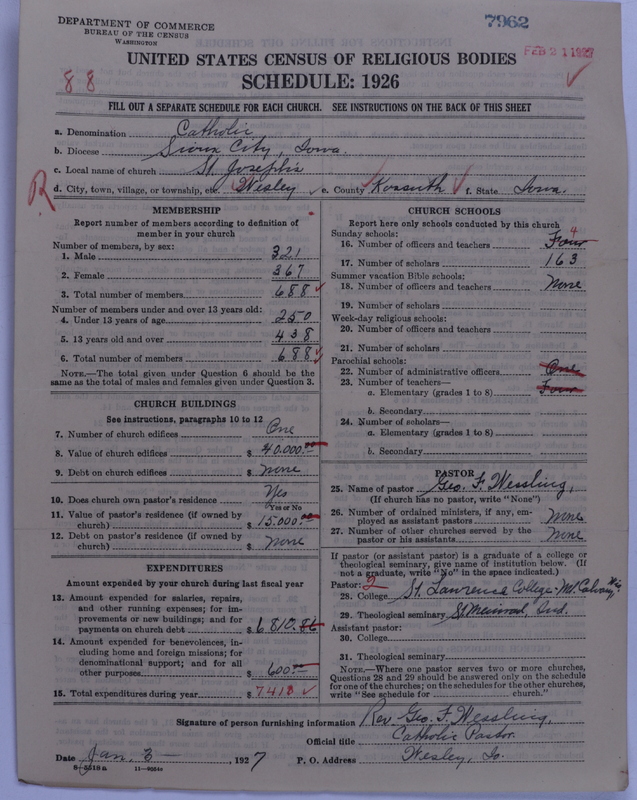 DEPARTMENT OF COMMERCE
BUREAU OF THE CENSUS
WASHINGTON
7962
FEB 21 1927
UNITED STATES CENSUS OF RELIGIOUS BODIES
SCHEDULE: 1926
88
FILL OUT A SEPARATE SCHEDULE FOR EACH CHURCH. SEE INSTRUCTIONS ON THE BACK OF THIS SHEET
a. Denomination Catholic
b. Diocese Sioux City, Iowa.
c. Local name of church St. Josephs
d. City, town, village, or township, etc. Wesley e. County Kossuth f. State Iowa.
R
MEMBERSHIP
Report number of members according to definition of member in your church
Number of members, by sex:
1. Male 321
2. Female 367
3. Total number of members 688
Number of members under and over 13 years old:
4. Under 13 years of age 250
5. 13 years old and over 438
6. Total number of members 688
NOTE.—The total given under Question 6 should be the same as the total of males and females given under Question 3.
CHURCH BUILDINGS
See instructions, paragraphs 10 to 12
7. Number of church edifices One
8. Value of church edifices $ 40.000.00
9. Debt on church edifices $ none
10. Does church own pastor's residence Yes
Yes or No
11. Value of pastor's residence (if owned by church) $ 15.000.00
12. Debt on pastor's residence (if owned by church) $ none
EXPENDITURES
Amount expended by your church during last fiscal year
13. Amount expended for salaries, repairs, and other running expenses; for improvements or new buildings; and for payments on church debt $ 6810.86
14. Amount expended for benevolences, including home and foreign missions; for denominational support; and for all other purposes $ 600.00
15. Total expenditures during year $ 7411
CHURCH SCHOOLS
Report here only schools conducted by this church
Sunday schools:
16. Number of officers and teachers Four 4
17. Number of scholars 163
Summer vacation Bible schools:
18. Number of officers and teachers None
19. Number of scholars
Week-day religious schools:
20. Number of officers and teachers
21. Number of scholars
Parochial schools:
22. Number of administrative officers One
23. Number of teachers—
a. Elementary (grades 1 to 8) Four
b. Secondary
24. Number of scholars—
a. Elementary (grades 1 to 8)
b. Secondary
PASTOR
25. Name of pastor Geo. F. Wessling,
(If church has no pastor, write "None")
26. Number of ordained ministers, if any, employed as assistant pastors None
27. Number of other churches served by the pastor or his assistants None
If pastor (or assistant pastor) is a graduate of a college or theological seminary, give name of institution below. (If not a graduate, write "No" in the space indicated.)
Pastor: 2
28. College St. Lawrence College - Mt. Calvary, Wis
29. Theological seminary St. Meinrad, Ind.
Assistant pastor:
30. College
31. Theological seminary
NOTE.—Where one pastor serves two or more churches, Questions 28 and 29 should be answered only on the schedule for one of the churches; on the schedules for the other churches, write "See schedule for church."
Signature of person furnishing information Rev. Geo. F. Wessling,
Official title Catholic Pastor.
Date Jan. 3, 1927 P. O. Address Wesley, Io.
8-5518a 11-9024